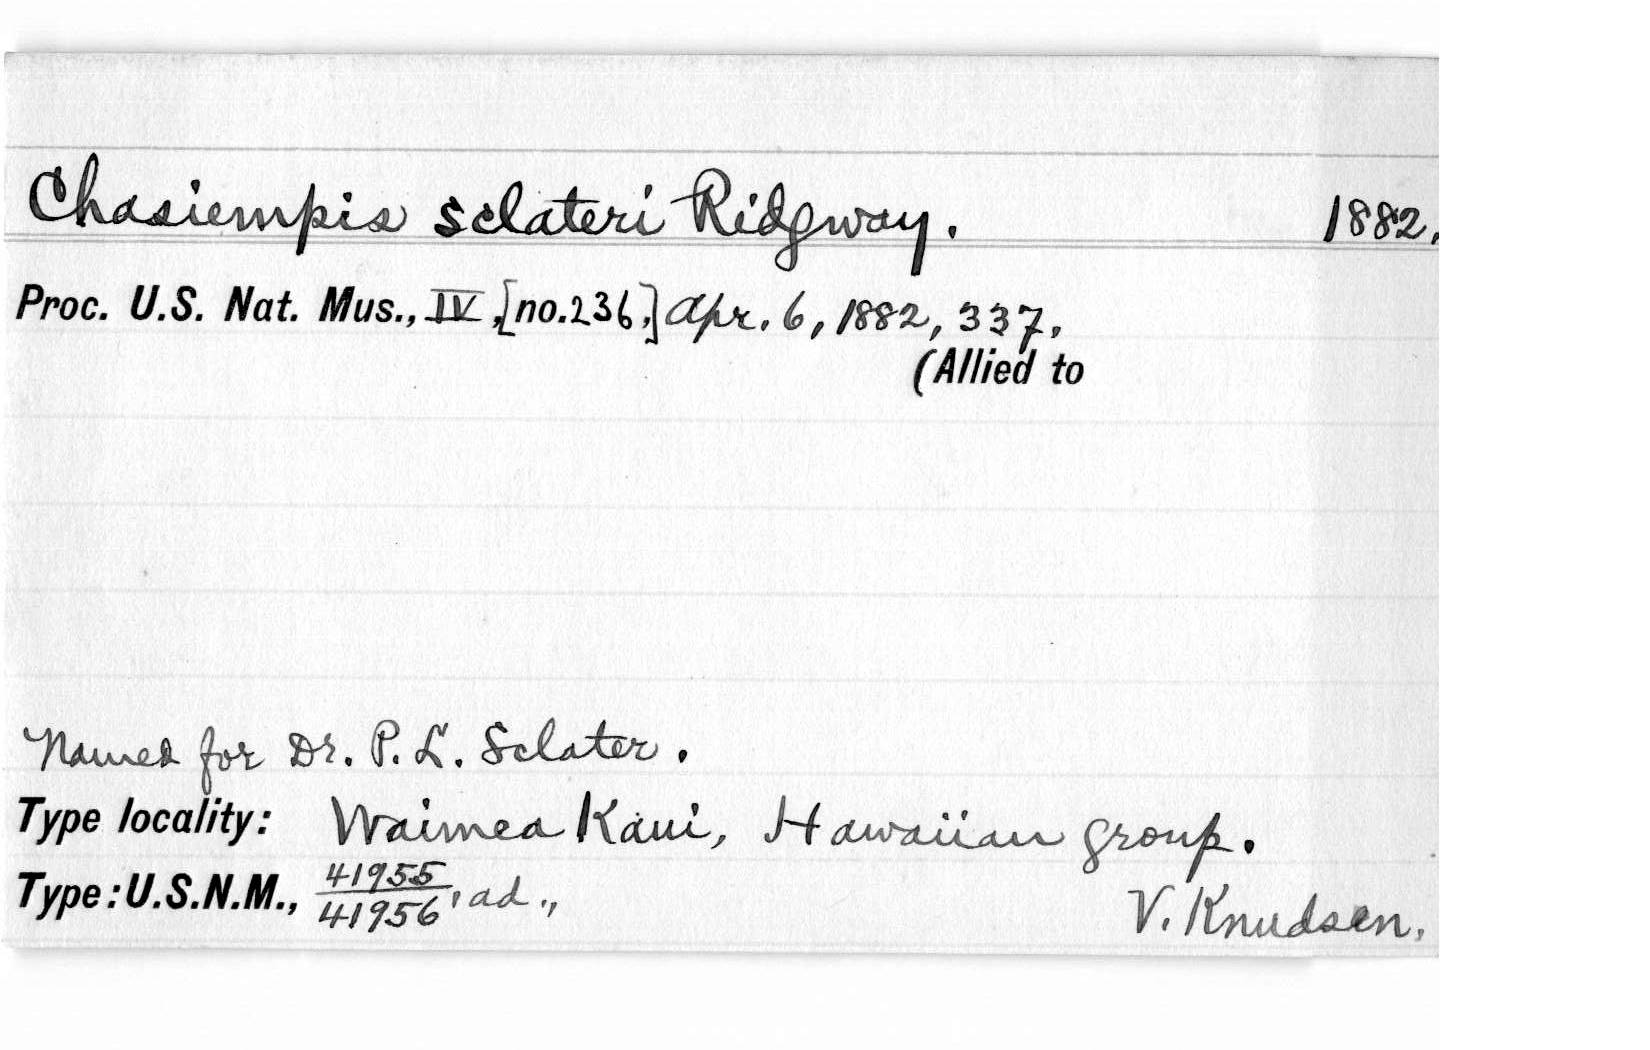 Chasiempis sclateri Ridgway. 1882.
Proc. U.S. Nat. Mus., IV, [no.236,] Apr. 6, 1882, 337.
(Allied to
Named for Dr. P. L. Sclater.
Type locality: Waimea Kaui, Hawaiian group.
Type: U.S.N.M., 41955/41956, ad., V. Knudsen.